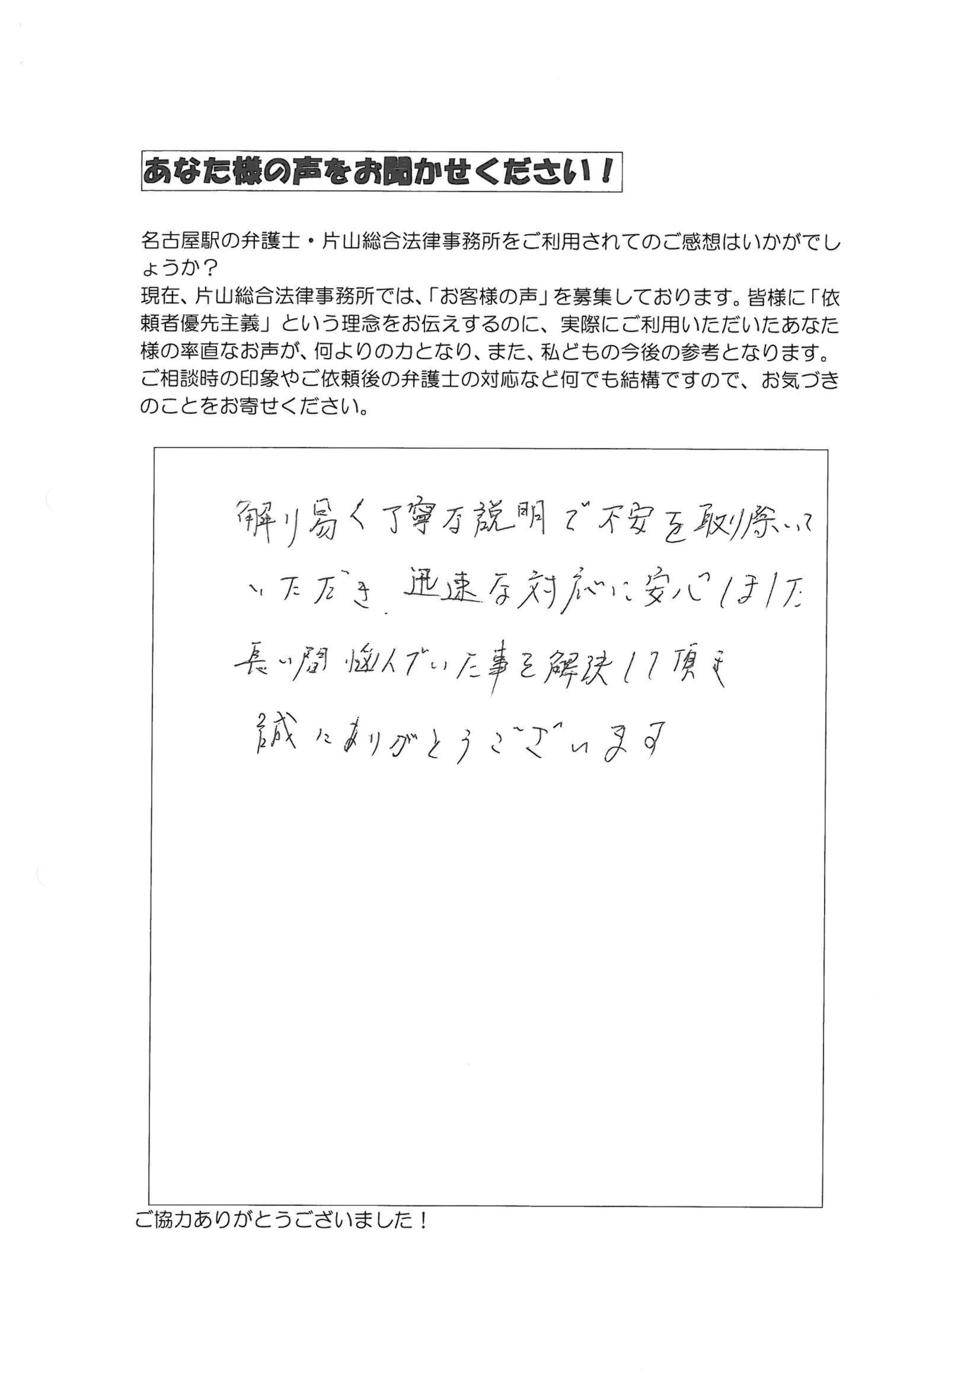 あなた様の声をお聞かせください！
名古屋駅の弁護士・片山総合法律事務所をご利用されてのご感想はいかがでし
ょうか？
現在、片山総合法律事務所では、「お客様の声」を募集しております。皆様に「依
頼者優先主義」という理念をお伝えするのに、実際にご利用いただいたあなた
様の率直なお声が、何よりの力となり、また、私どもの今後の参考となります。
ご相談時の印象やご依頼後の弁護士の対応など何でも結構ですので、お気づき
のことをお寄せください。
解り易く丁寧な説明で不安を取り除いて
いただき、迅速な対応に安心しました
長い間悩んでいた事を解決して頂き
誠にありがとうございます
ご協力ありがとうございました！